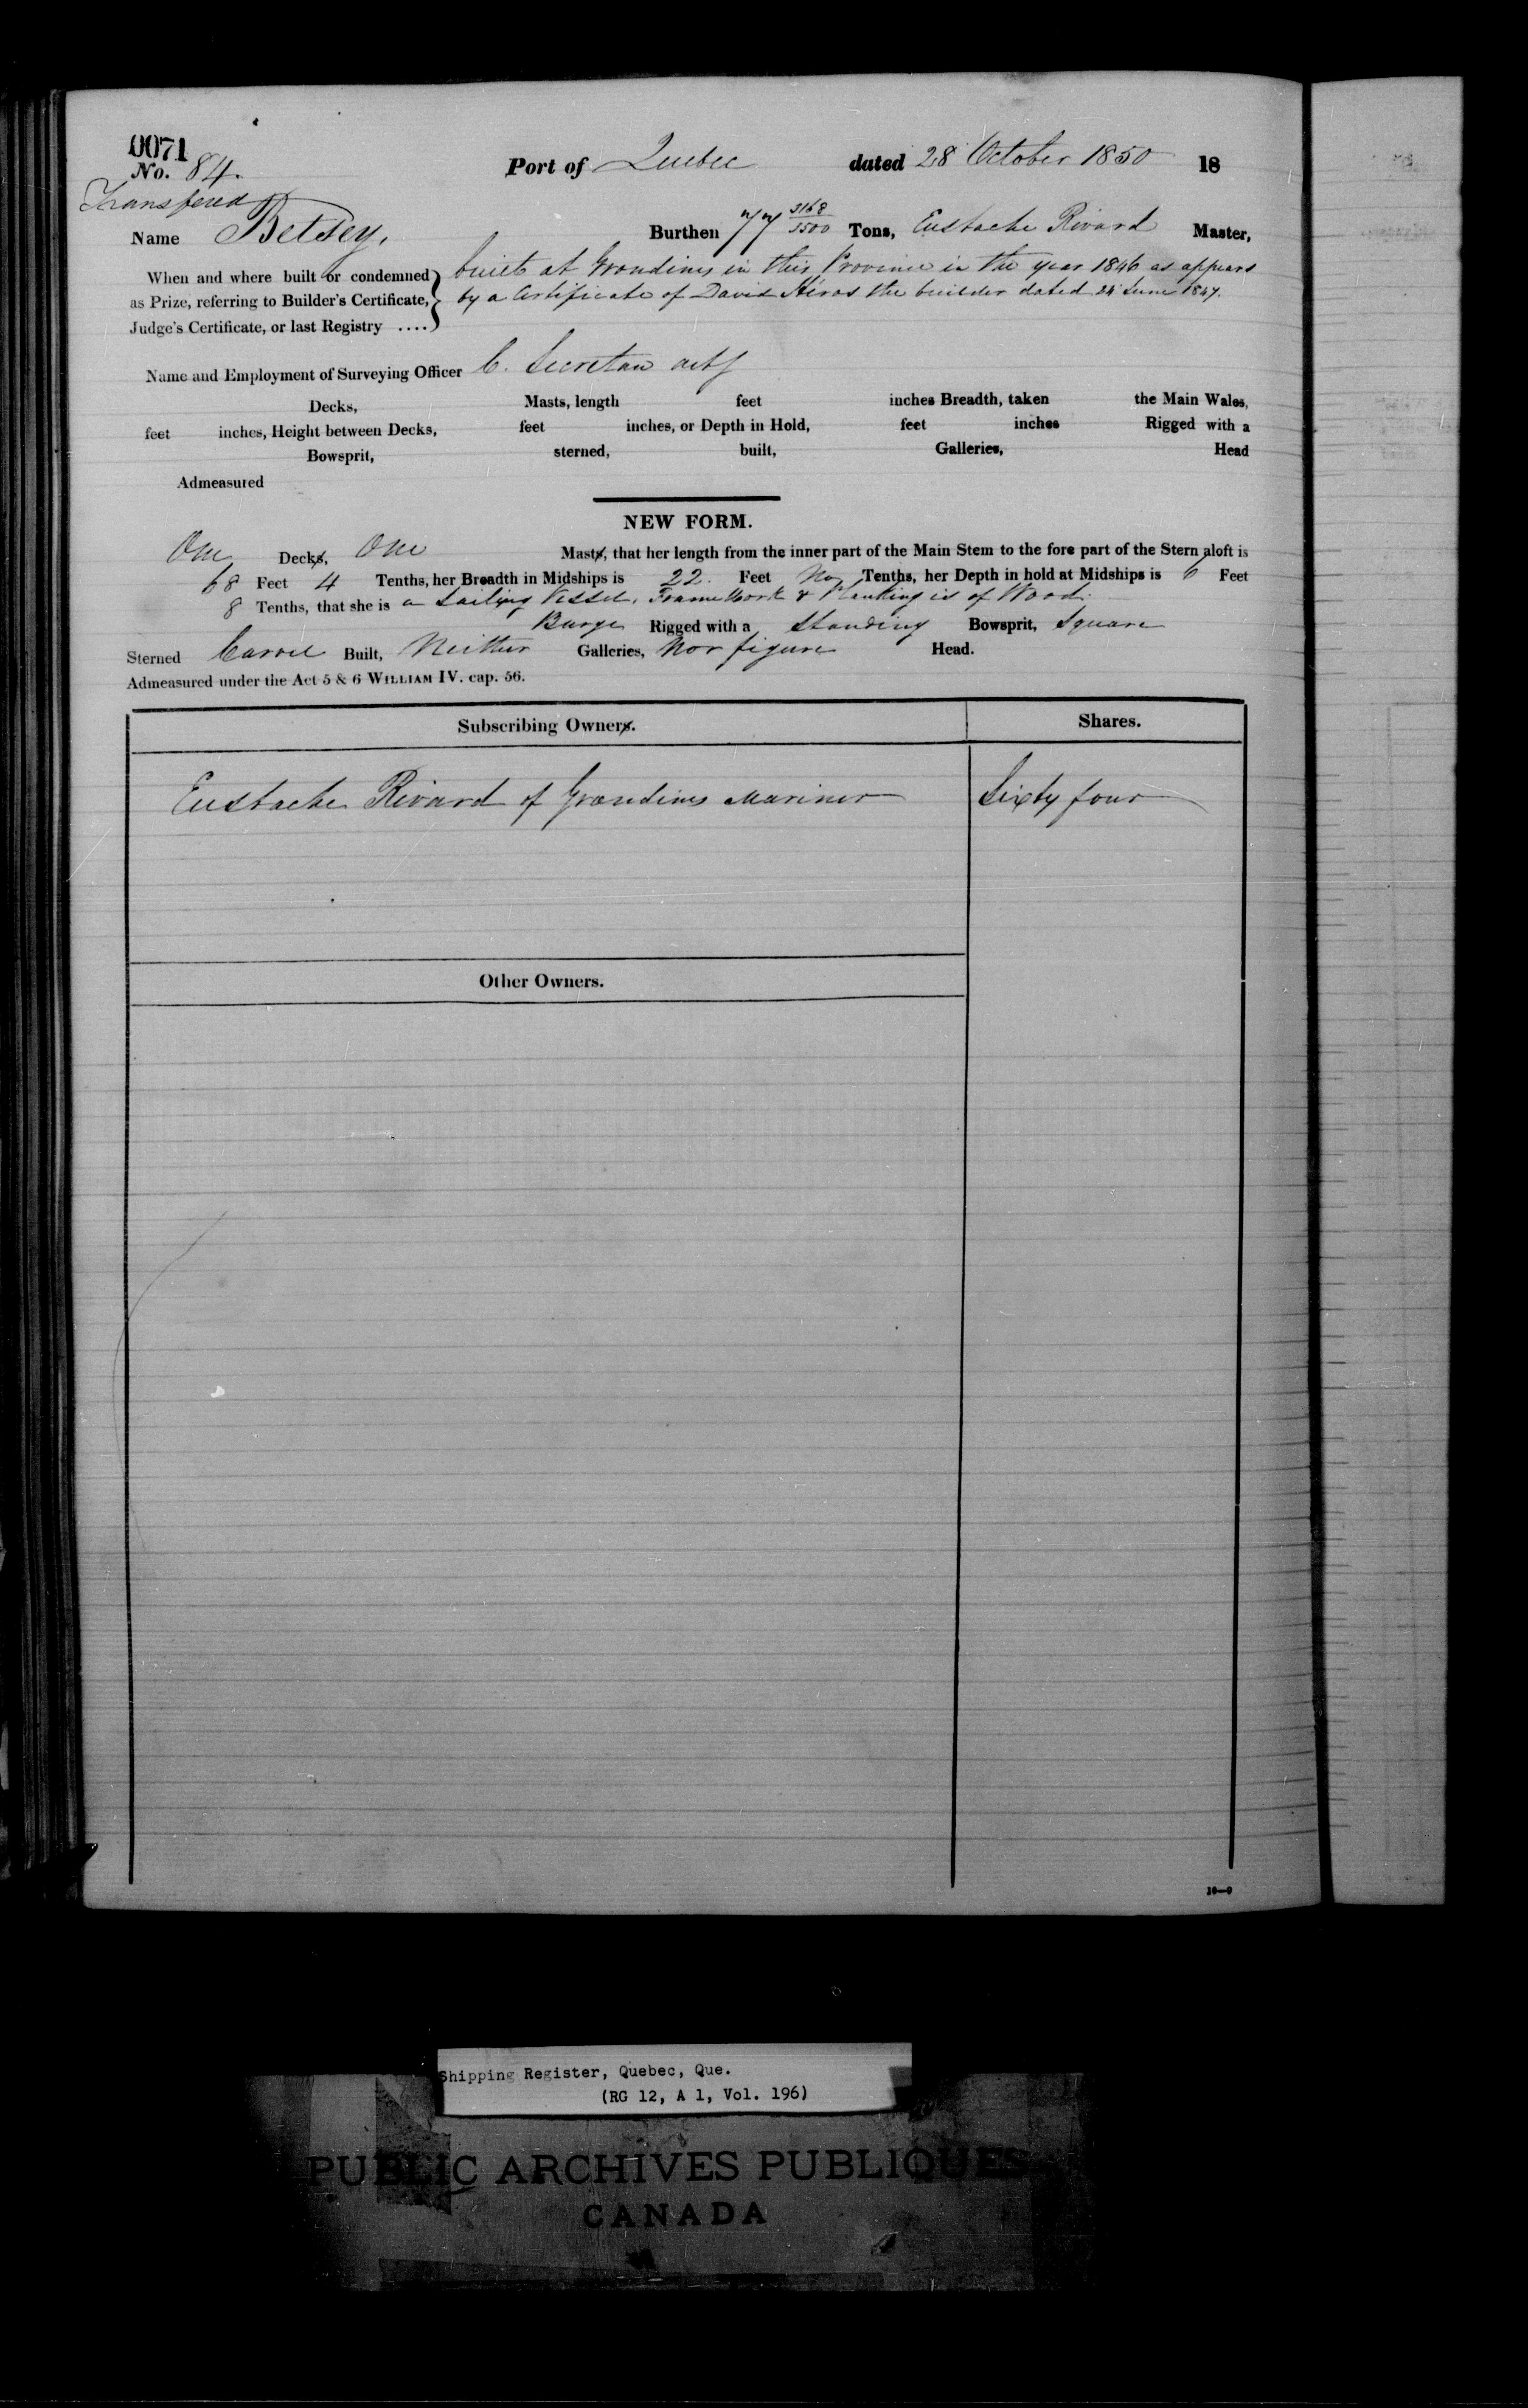 0071
No. 84. Port of Quebec dated 28 October 1850 18
Transfered
Name Betsey, Burthen 77 3168/3500 Tons, Eustache Rivard Master,
When and where built or condemned built at Grondines in this Province in the year 1846 as appears
as Prize, referring to Builder's Certificate, by a Certificate of David the builder dated 24 June 1847.
Judge's Certificate, or last Registry ....
Name and Employment of Surveying Officer C. Secretan actg
Decks, Masts, length feet inches Breadth, taken the Main Wales,
feet inches, Height between Decks, feet inches, or Depth in Hold, feet inches Rigged with a
Bowsprit, sterned, built, Galleries, Head
Admeasured
NEW FORM.
One Decks, One Masts, that her length from the inner part of the Main Stem to the fore part of the Stern aloft is
68 Feet 4 Tenths, her Breadth in Midships is 22 Feet No Tenths, her Depth in hold at Midships is 6 Feet
8 Tenths, that she is a Sailing Vessel, Frame Work & Planking is of Wood.
Barge Rigged with a Standing Bowsprit, Square
Sterned Carvel Built, Neither Galleries, Nor figure Head.
Admeasured under the Act 5 & 6 WILLIAM IV. cap. 56.
Subscribing Owners. Shares.
Eustache Rivard of Grondines Mariner Sixty four
Other Owners.
10—9
Shipping Register, Quebec, Que.
(RG 12, A 1, Vol. 196)
PUBLIC ARCHIVES PUBLIQUES
CANADA